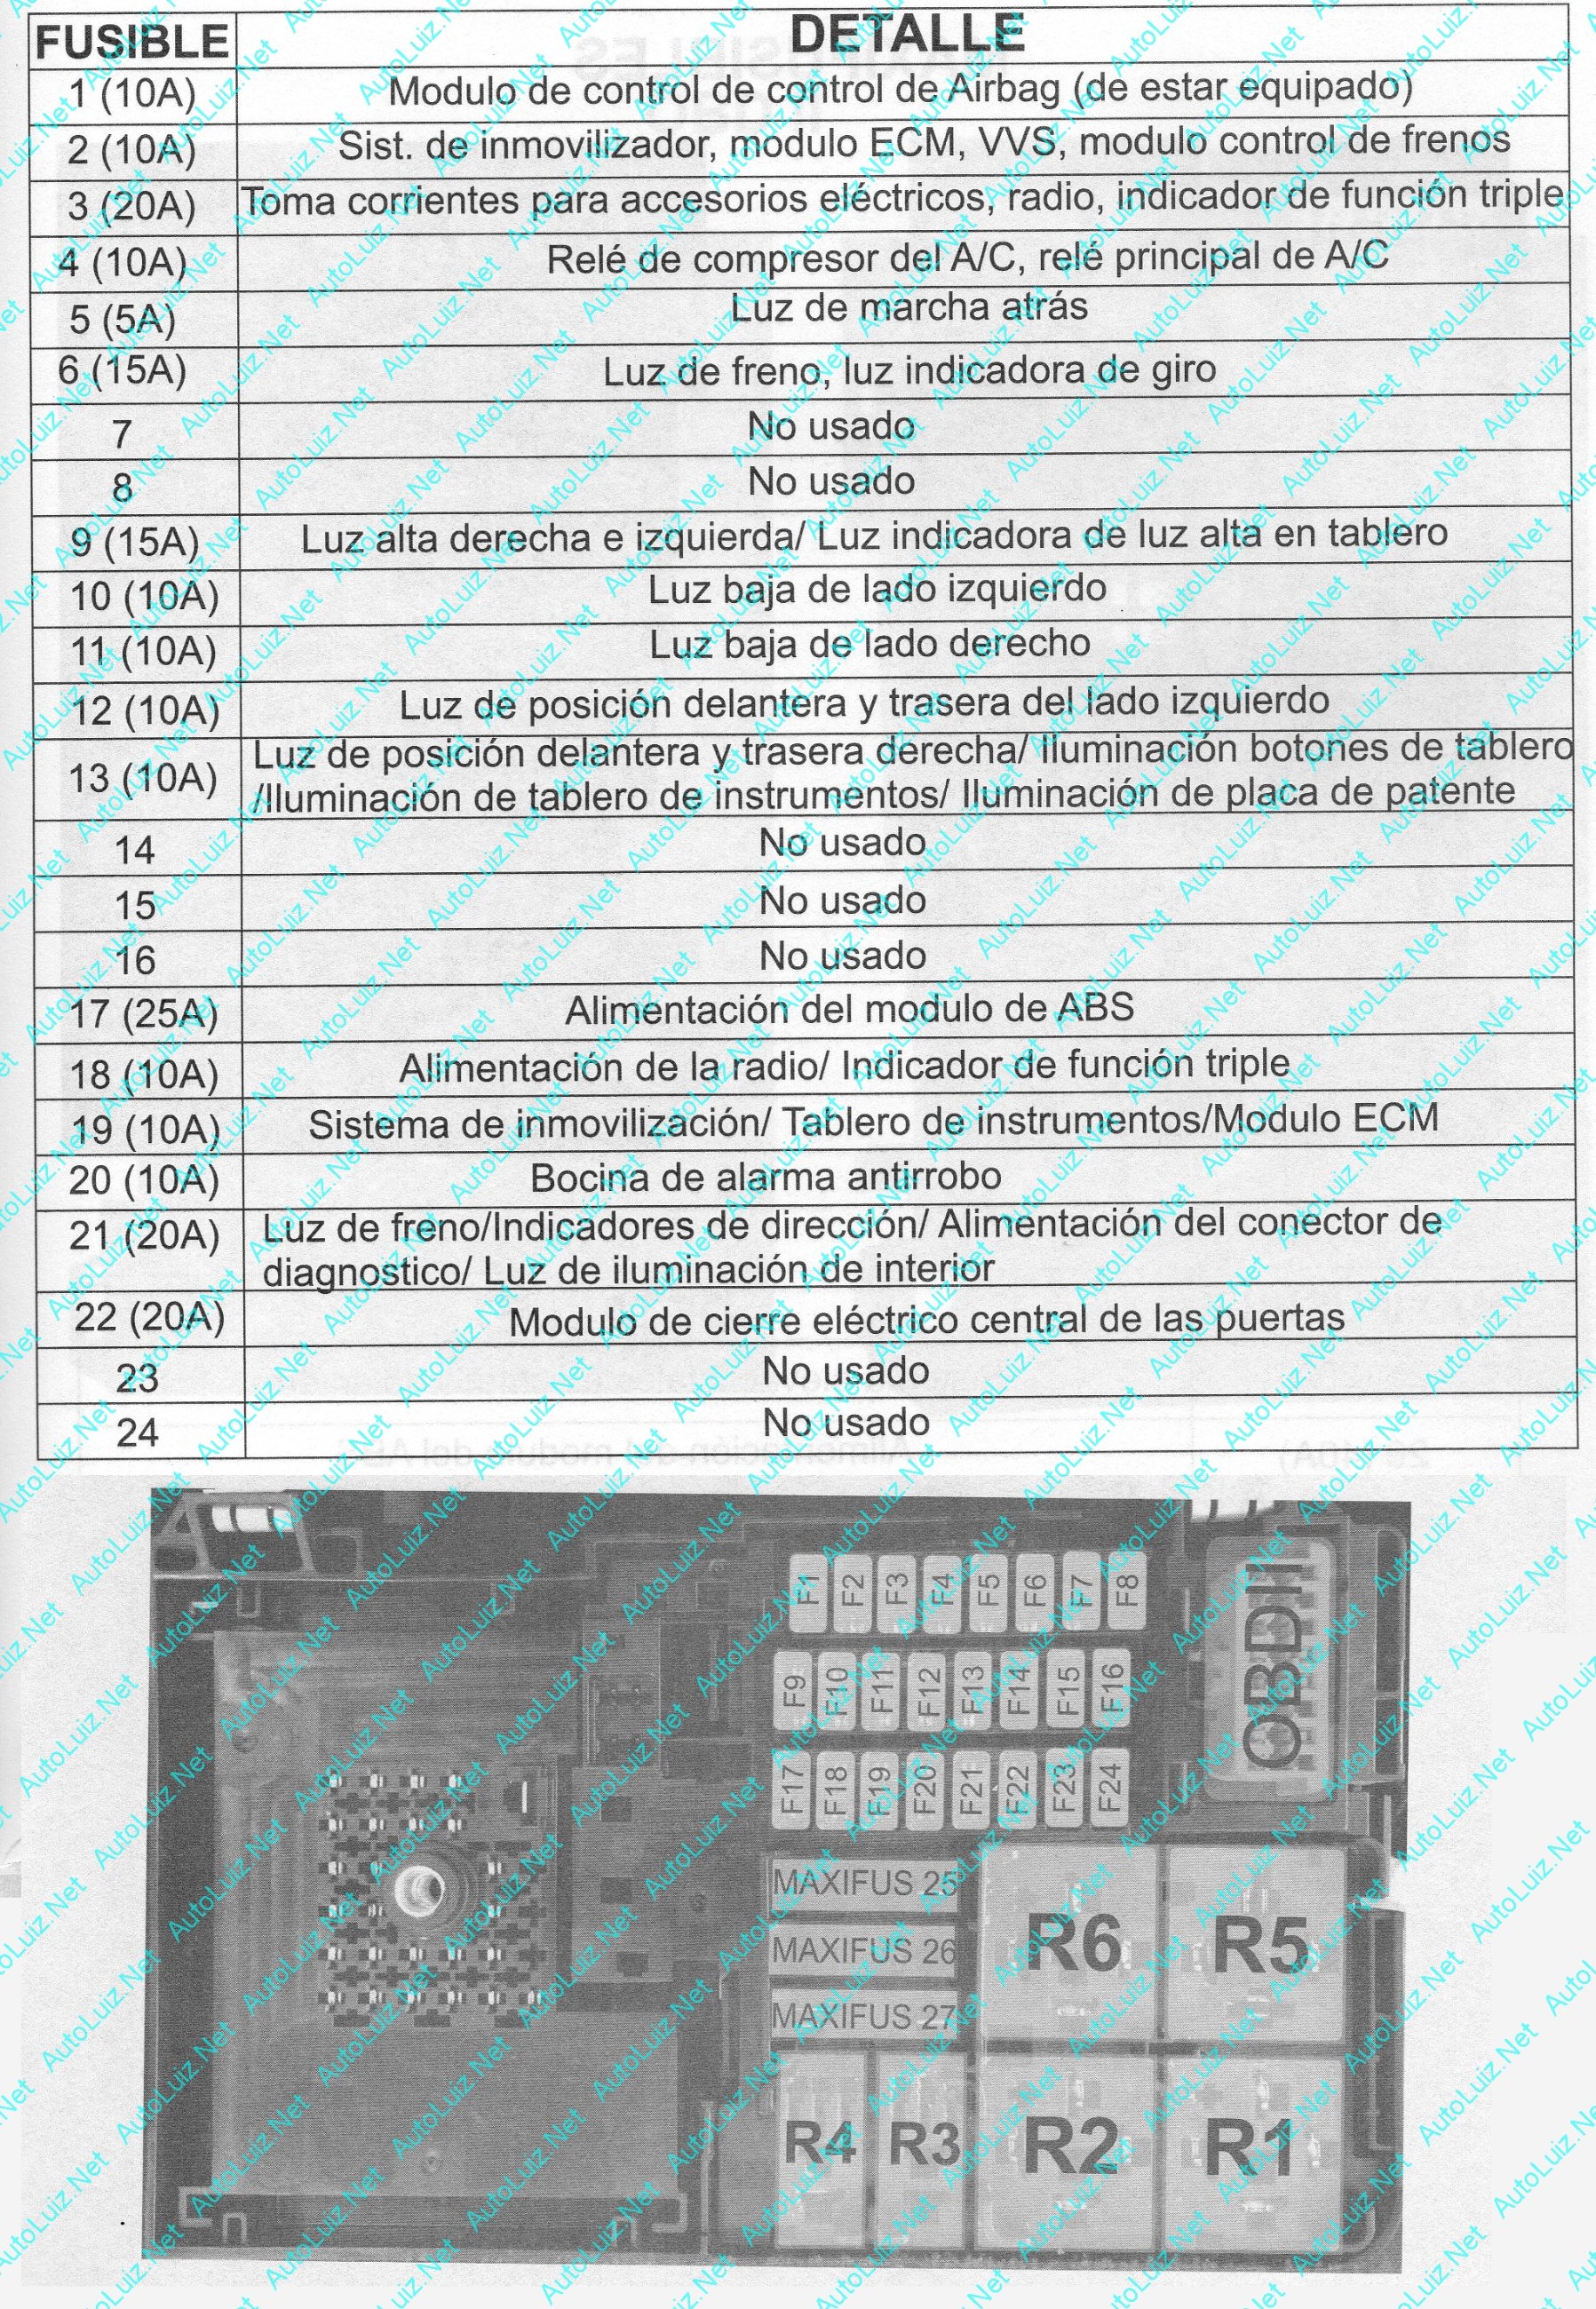 FUSIBLE DETALLE
1 (10A) Modulo de control de control de Airbag (de estar equipado)
2 (10A) Sist. de inmovilizador, modulo ECM, VVS, modulo control de frenos
3 (20A) Toma corrientes para accesorios eléctricos, radio, indicador de función triple
4 (10A) Relé de compresor del A/C, relé principal de A/C
5 (5A) Luz de marcha atrás
6 (15A) Luz de freno, luz indicadora de giro
7 No usado
8 No usado
9 (15A) Luz alta derecha e izquierda/ Luz indicadora de luz alta en tablero
10 (10A) Luz baja de lado izquierdo
11 (10A) Luz baja de lado derecho
12 (10A) Luz de posición delantera y trasera del lado izquierdo
13 (10A) Luz de posición delantera y trasera derecha/ Iluminación botones de tablero
/Iluminación de tablero de instrumentos/ Iluminación de placa de patente
14 No usado
15 No usado
16 No usado
17 (25A) Alimentación del modulo de ABS
18 (10A) Alimentación de la radio/ Indicador de función triple
19 (10A) Sistema de inmovilización/ Tablero de instrumentos/Modulo ECM
20 (10A) Bocina de alarma antirrobo
21 (20A) Luz de freno/Indicadores de dirección/ Alimentación del conector de
diagnostico/ Luz de iluminación de interior
22 (20A) Modulo de cierre eléctrico central de las puertas
23 No usado
24 No usado
F1 F2 F3 F4 F5 F6 F7 F8
F9 F10 F11 F12 F13 F14 F15 F16
F17 F18 F19 F20 F21 F22 F23 F24
OBDII
MAXIFUS 25
MAXIFUS 26
MAXIFUS 27
R6 R5
R4 R3 R2 R1
AutoLuiz.Net